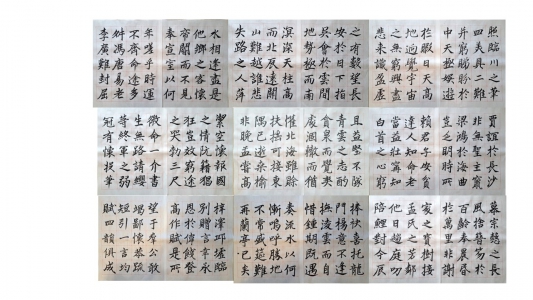 照臨川之筆
四美具二難
并窮睇眄於
中天極娛遊
於暇日天高
地迥覺宇宙
之無窮興盡
悲来識盈虛
之有數望長
安於日下指
吳會於雲間
地勢極而南
溟深天柱高
而北辰遠關
山難越誰悲
失路之人萍
水相逢盡是
他鄉之客懷
帝閽而不見
奉宣室以何
年嗟乎時運
不齊命途多
舛馮唐易老
李廣難封屈
賈誼於長沙
非無聖主竄
梁鴻於海曲
豈乏明時所
賴君子安貧
達人知命老
當益壯寧知
白首之心窮
且益堅不墜
青雲之志酌
貪泉而覺爽
處涸轍而猶
懽北海雖賒
扶搖可接東
隅已逝桑榆
非晚孟嘗高
潔空懷報國
之情阮籍猖
狂豈效窮途
之哭勃三尺
微命一介書
生無路請纓
等終軍之弱
冠有懷投筆
慕宗慤之長
風捨簪笏於
百齡奉晨昏
於萬里非謝
家之寶樹接
孟氏之芳鄰
他日趨庭叨
陪鯉對今晨
捧袂喜托龍
門楊意不逢
撫凌雲而自
惜鍾期既遇
奏流水以何
慚嗚呼勝地
不常盛筵難
再蘭亭已矣
梓澤邱墟臨
別贈言幸承
恩於偉餞登
高作賦是所
望於羣公敢
竭鄙懷恭疏
短引一言均
賦四韻俱成